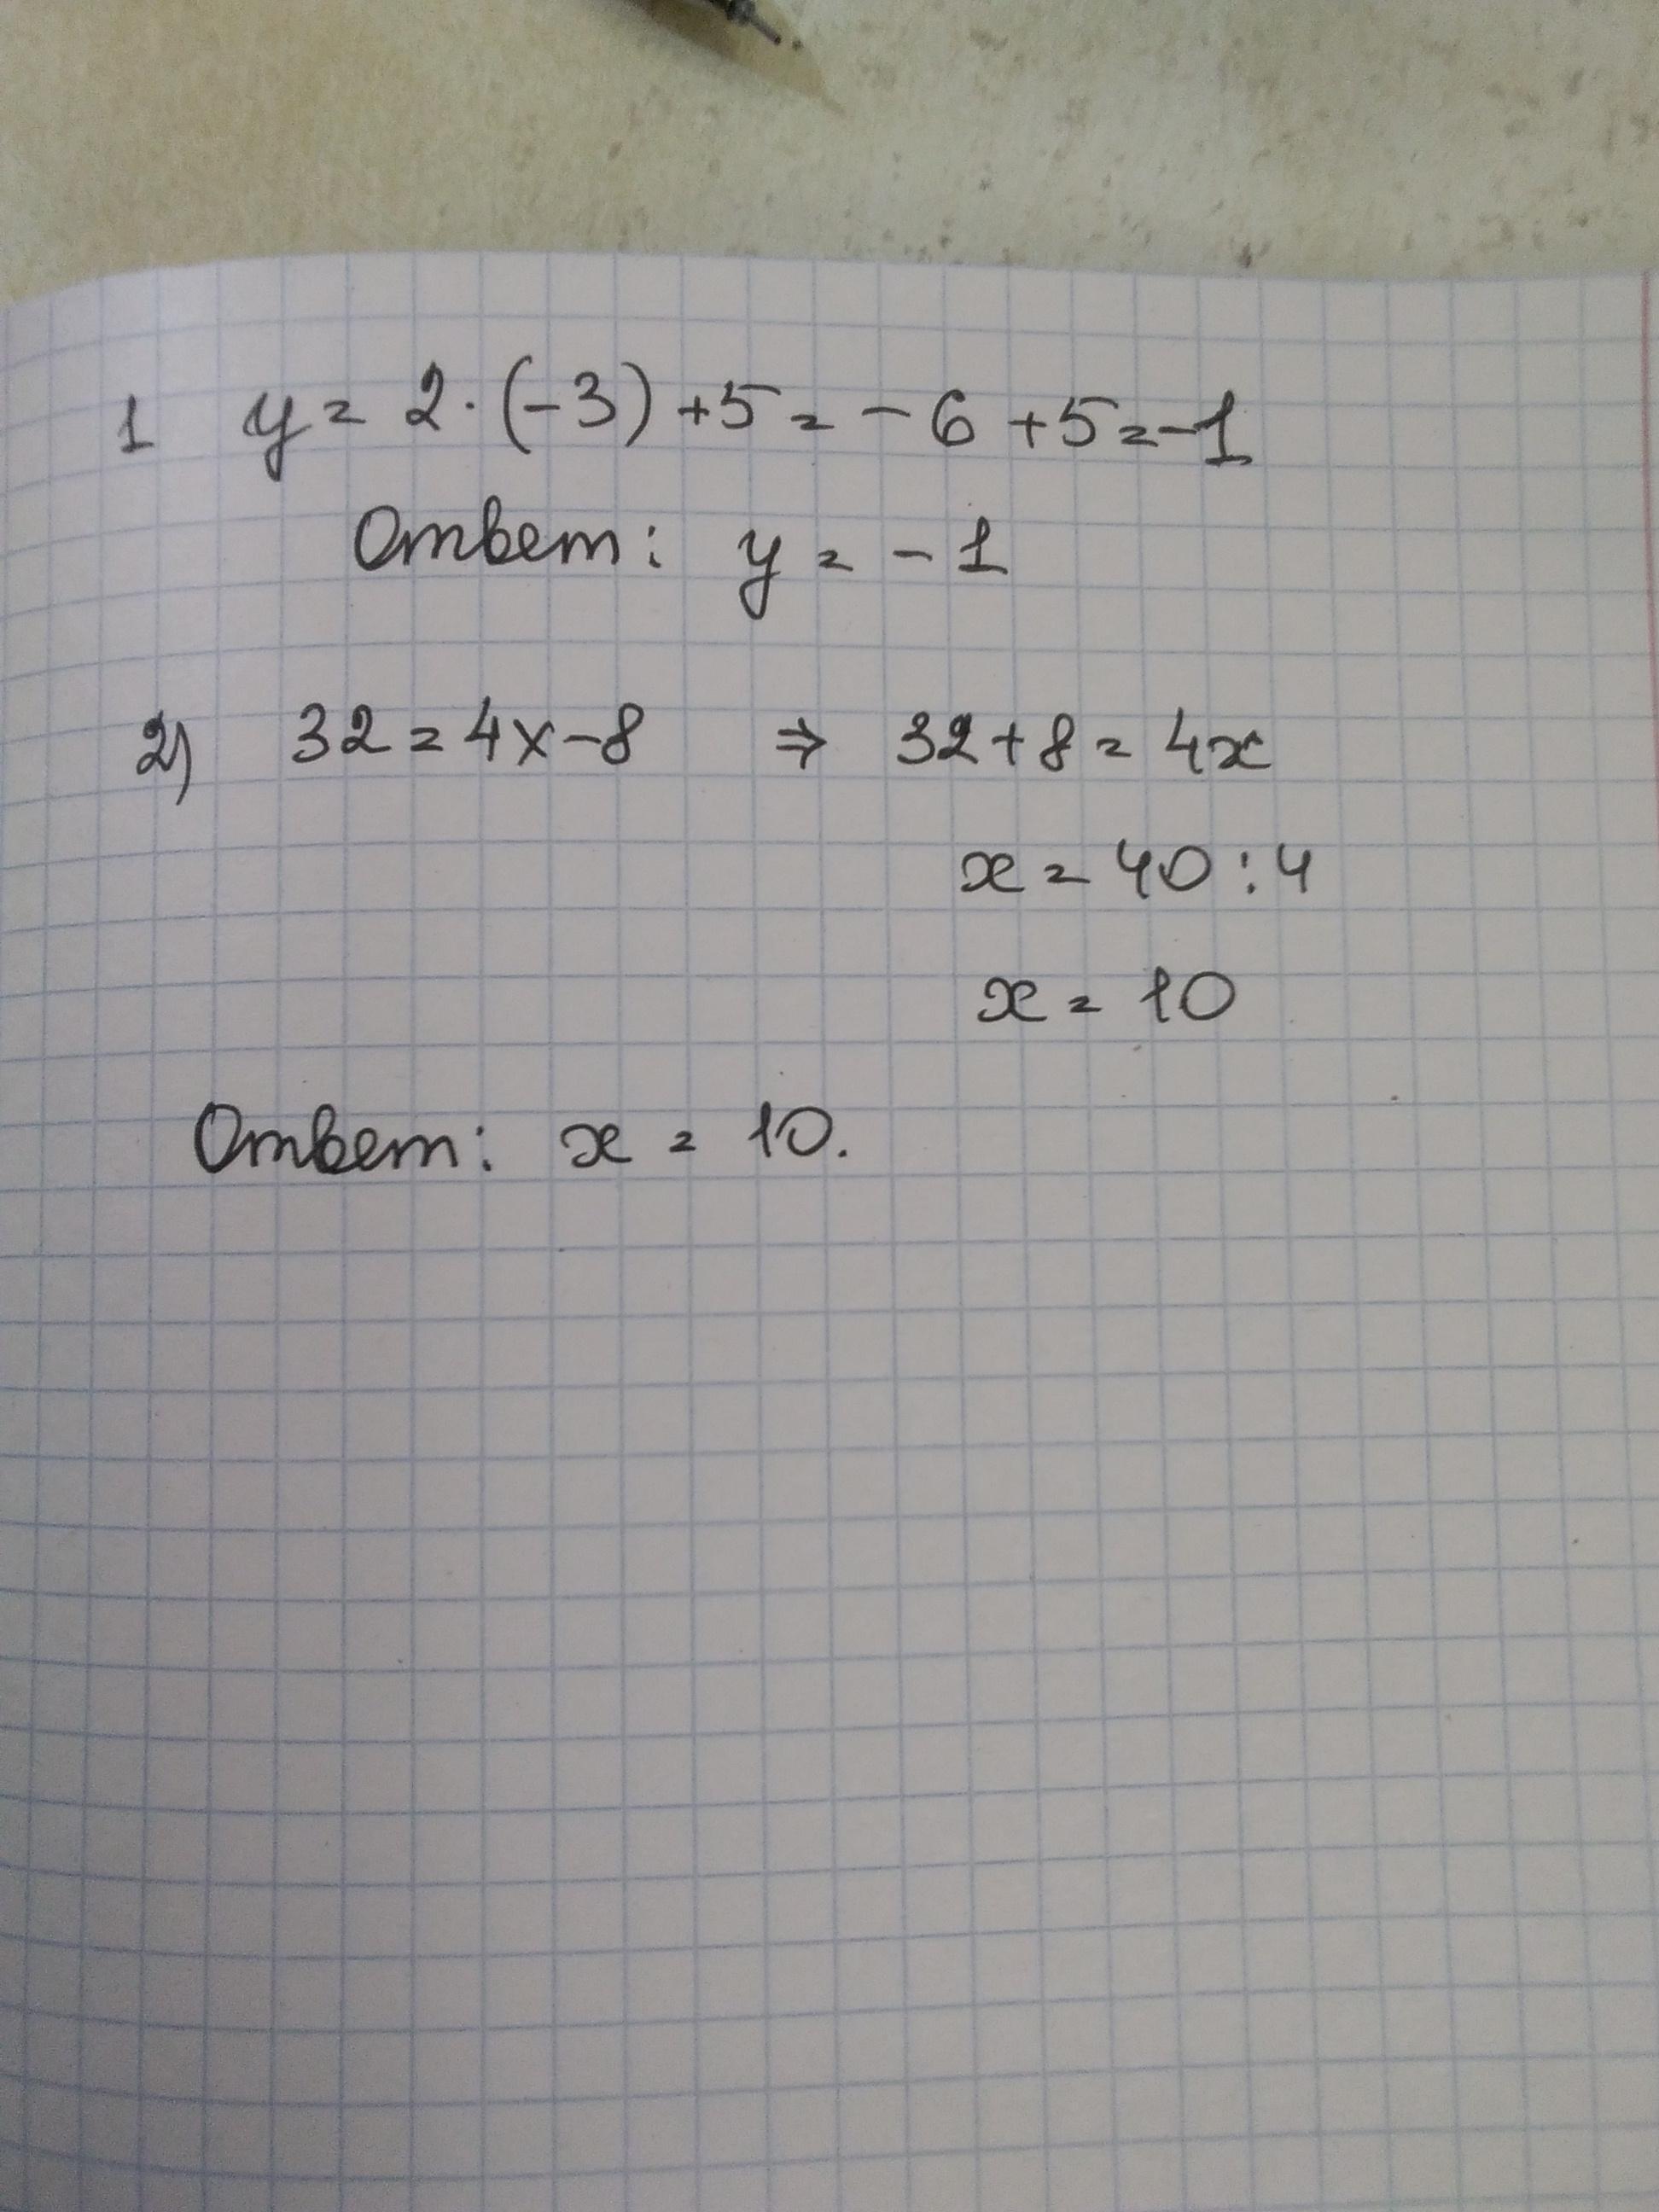 1 y = 2·(-3)+5 = -6+5=-1
Ответ: y = -1
2) 32=4x-8 ⇒ 32+8=4x
x = 40:4
x = 10
Ответ: x = 10.